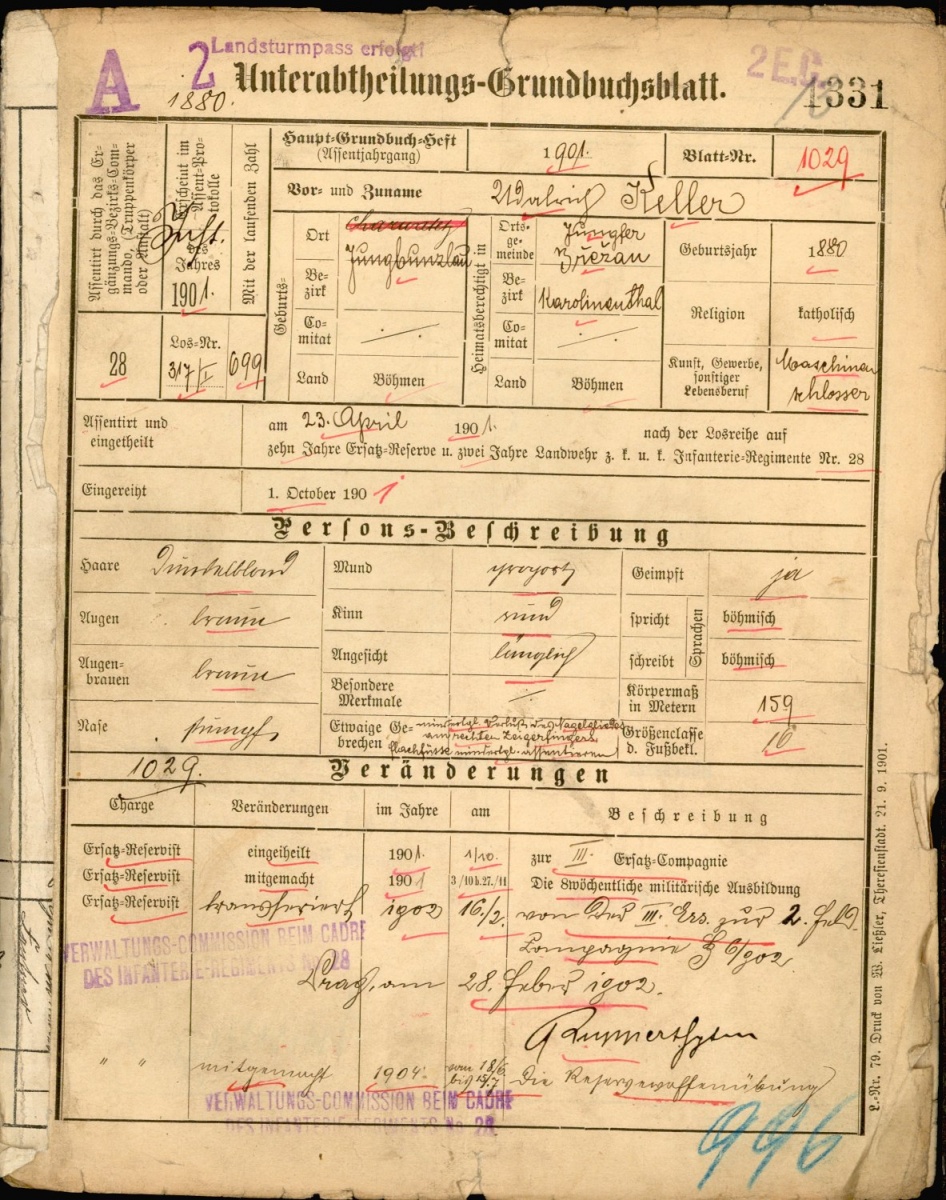 A
2
Landsturmpass erfolgt!
2 E.C.
1880.
Unterabtheilungs-Grundbuchsblatt.
1331
Assentirt durch das Ergänzungs-Bezirks-Commando, (Truppenkörper oder Anstalt)
28
Erscheint im Assent-Protokolle
des
Jahres
1901.
Los-Nr.
317/I
Mit der laufenden Zahl
699
Haupt-Grundbuch-Heft
(Assentjahrgang)
1901.
Blatt-Nr.
1029
Vor- und Zuname
Udalrich Keller
Geburts-
Ort
Jungbunzlau
Be-
zirk
Co-
mitat
Land
Böhmen
Heimatsberechtigt in
Orts-
ge-
meinde
Jungfer
Břežan
Be-
zirk
Karolinenthal
Co-
mitat
Land
Böhmen
Geburtsjahr
1880
Religion
katholisch
Kunst, Gewerbe,
sonstiger
Lebensberuf
Maschinen
schlosser
Assentirt und
eingetheilt
am 23. April 1901. nach der Losreihe auf
zehn Jahre Ersatz-Reserve u. zwei Jahre Landwehr z. k. u. k. Infanterie-Regimente Nr. 28
Eingereiht
1. October 1901
Persons-Beschreibung
Haare
Dunkelblond
Augen
braun
Augen-
brauen
braun
Nase
stumpf
Mund
proport
Kinn
rund
Angesicht
länglich
Besondere
Merkmale
Etwaige Ge-
brechen
mindergl. Verlust des Nagelgliedes
am rechten Zeigerfingers
Flachfüsse mindergl.
Geimpft
ja
spricht
schreibt
Sprachen
böhmisch
böhmisch
Körpermaß
in Metern
159
Größenclasse
d. Fußbekl.
10
1029.
Veränderungen
Charge
Veränderungen
im Jahre
am
Beschreibung
Ersatz-Reservist eingetheilt 1901. 1/10. zur III. Ersatz-Compagnie
Ersatz-Reservist mitgemacht 1901 3/10 b. 27./11 Die 8wöchentliche militärische Ausbildung
Ersatz-Reservist transferiert 1902 16./2. von der III. Ers. zur 2. Feld-
Compagnie
VERWALTUNGS-COMMISSION BEIM CADRE
DES INFANTERIE-REGIMENTS No 28
Prag, am 28. Feber 1902.
" " mitgemacht 1904 vom 18/6. bis 15/7 Die Reservewaffenübung
VERWALTUNGS-COMMISSION BEIM CADRE
DES INFANTERIE-REGIMENTS No. 28
996
L.-Nr. 79. Druck von W. Ließler, Theresienstadt. 21. 9. 1901.